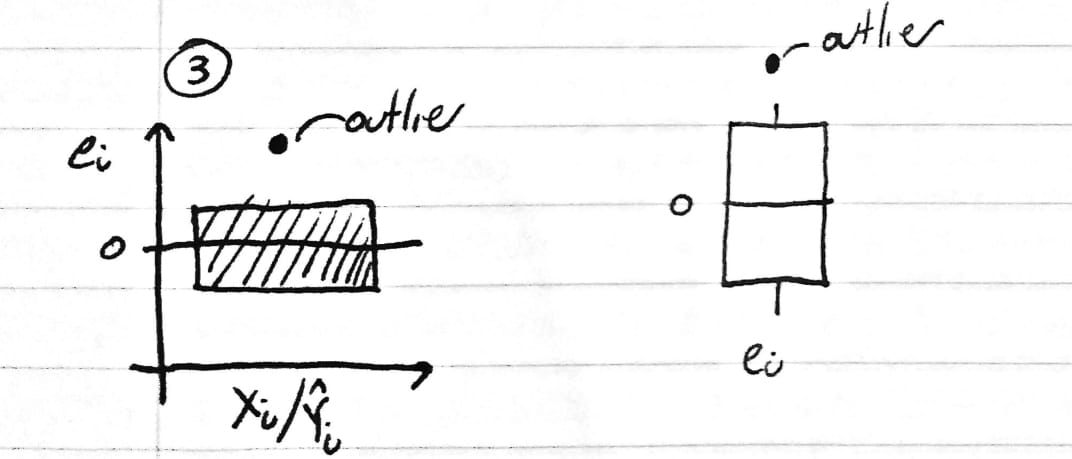 ③
outlier
eᵢ
0
Xᵢ/Ŷᵢ
outlier
0
eᵢ